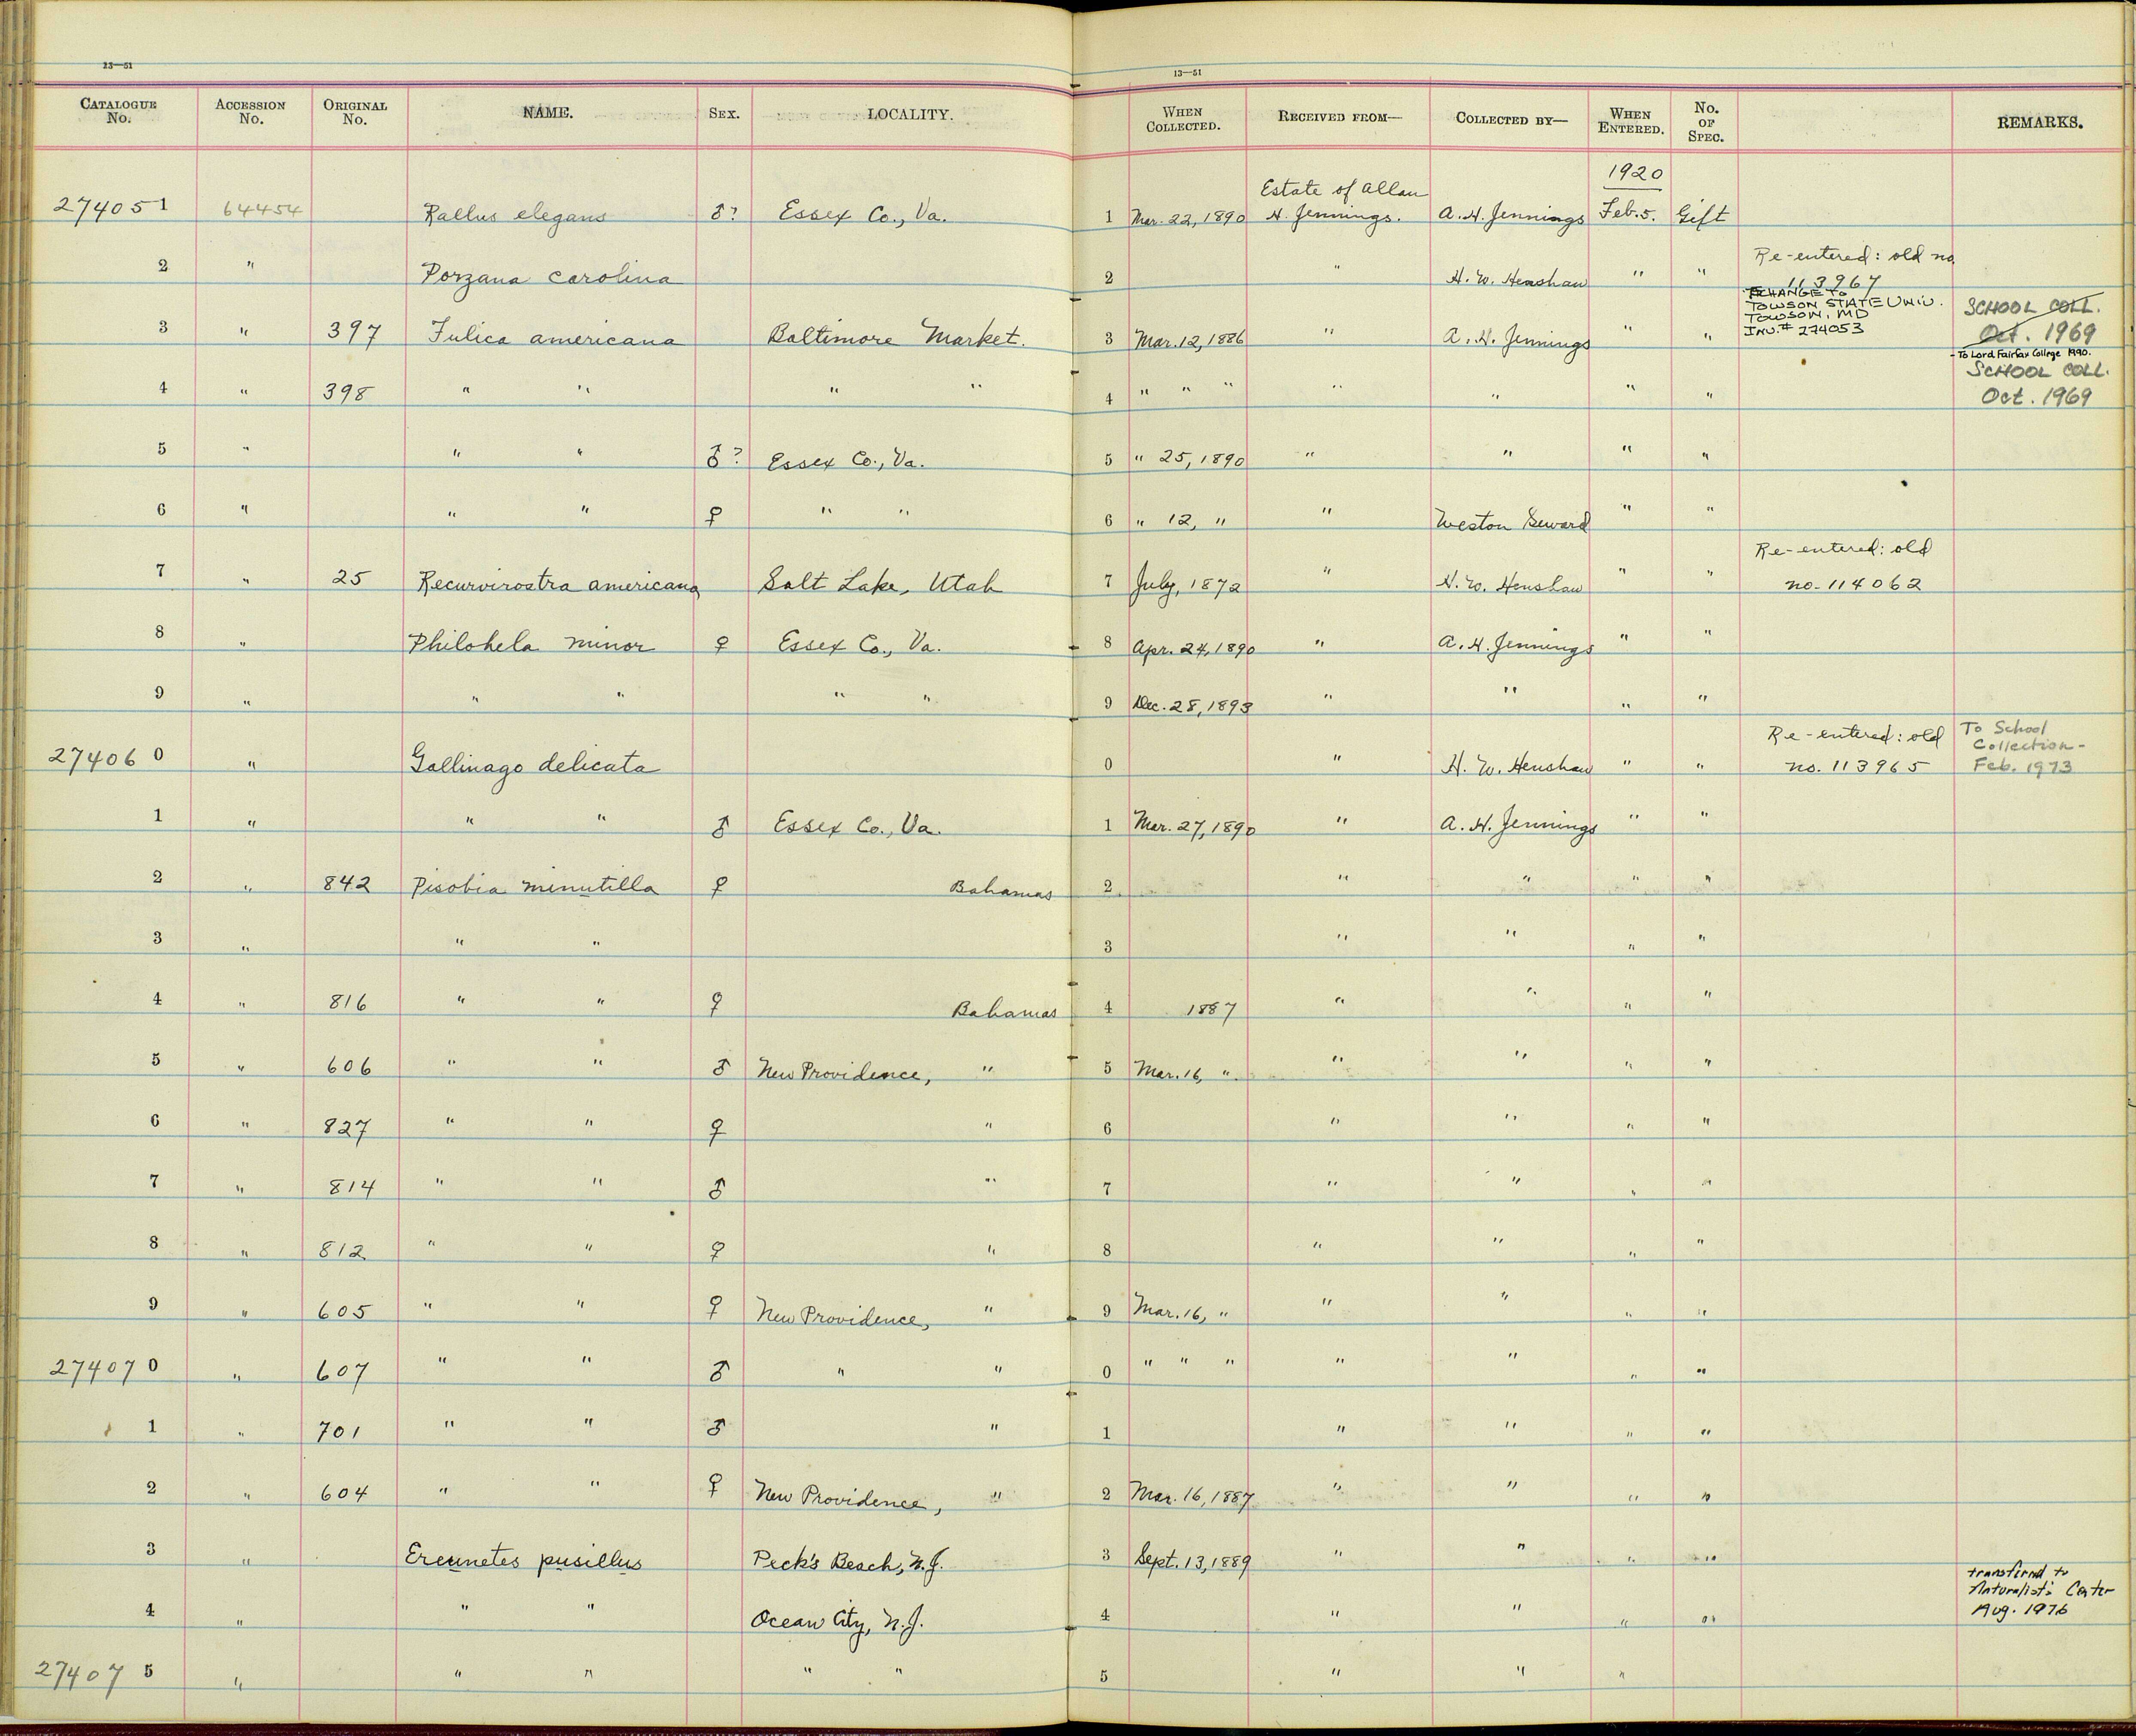 13—51
13—51
CATALOGUE No. ACCESSION No. ORIGINAL No. NAME. SEX. LOCALITY. WHEN COLLECTED. RECEIVED FROM— COLLECTED BY— WHEN ENTERED. No. OF SPEC. REMARKS.
1920
Estate of Allan
274051 64454 Rallus elegans ♂? Essex Co., Va. 1 Mar. 22, 1890 H. Jennings. A. H. Jennings Feb. 5. Gift
Re-entered: old no.
2 " Porzana carolina 2 " H. W. Henshaw " " 113967
EXCHANGE TO
TOWSON STATE UNIV. SCHOOL COLL.
TOWSON, MD
3 " 397 Fulica americana Baltimore Market. 3 Mar. 12, 1886 " A. H. Jennings " " INV. # 274053 Oct. 1969
- To Lord Fairfax College 1990.
SCHOOL COLL.
4 " 398 " " " " 4 " " " " " " " Oct. 1969
5 " " " ♂? Essex Co., Va. 5 " 25, 1890 " " " "
6 " " " ♀ " " 6 " 12, " " Weston Seward " "
Re-entered: old
7 " 25 Recurvirostra americana Salt Lake, Utah 7 July, 1872 " H. W. Henshaw " " no. 114062
8 " Philohela minor ♀ Essex Co., Va. 8 Apr. 24, 1890 " A. H. Jennings " "
9 " " " " " 9 Dec. 28, 1893 " " " "
Re-entered: old To School
Collection -
274060 " Gallinago delicata 0 " H. W. Henshaw " " no. 113965 Feb. 1973
1 " " " ♂ Essex Co., Va. 1 Mar. 27, 1890 " A. H. Jennings " "
2 " 842 Pisobia minutilla ♀ Bahamas 2 " " " "
3 " " " 3 " " " "
4 " 816 " " ♀ Bahamas 4 1887 " " " "
5 " 606 " " ♂ New Providence, " 5 Mar. 16, " " " " "
6 " 827 " " ♀ " 6 " " " "
7 " 814 " " ♂ " 7 " " " "
8 " 812 " " ♀ " 8 " " " "
9 " 605 " " ♀ New Providence, " 9 Mar. 16, " " " " "
274070 " 607 " " ♂ " " 0 " " " " " " "
1 " 701 " " ♂ " 1 " " " "
2 " 604 " " ♀ New Providence, " 2 Mar. 16, 1887 " " " "
3 " Ereunetes pusillus Peck's Beach, N.J. 3 Sept. 13, 1889 " " " "
transferred to
Naturalist's Center
4 " " " Ocean City, N.J. 4 " " " " Aug. 1976
274075 " " " " " 5 " " "